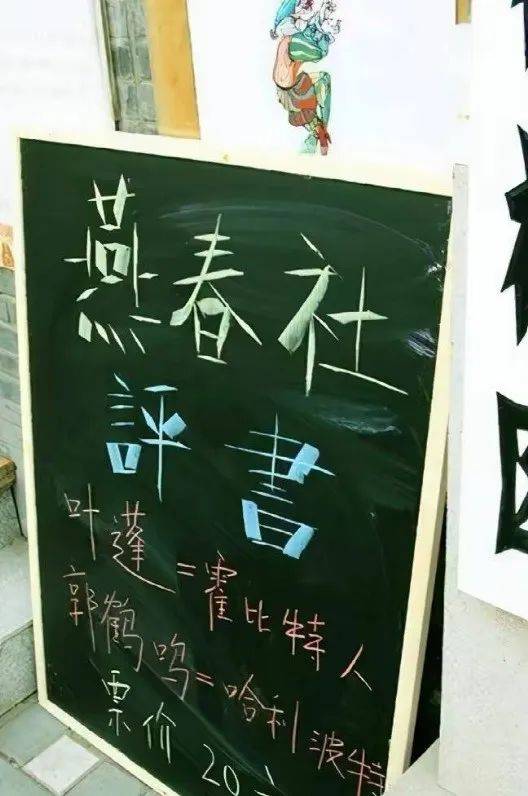 燕春社
評書
叶蓬=霍比特人
郭鹤鸣=哈利波特
票价20